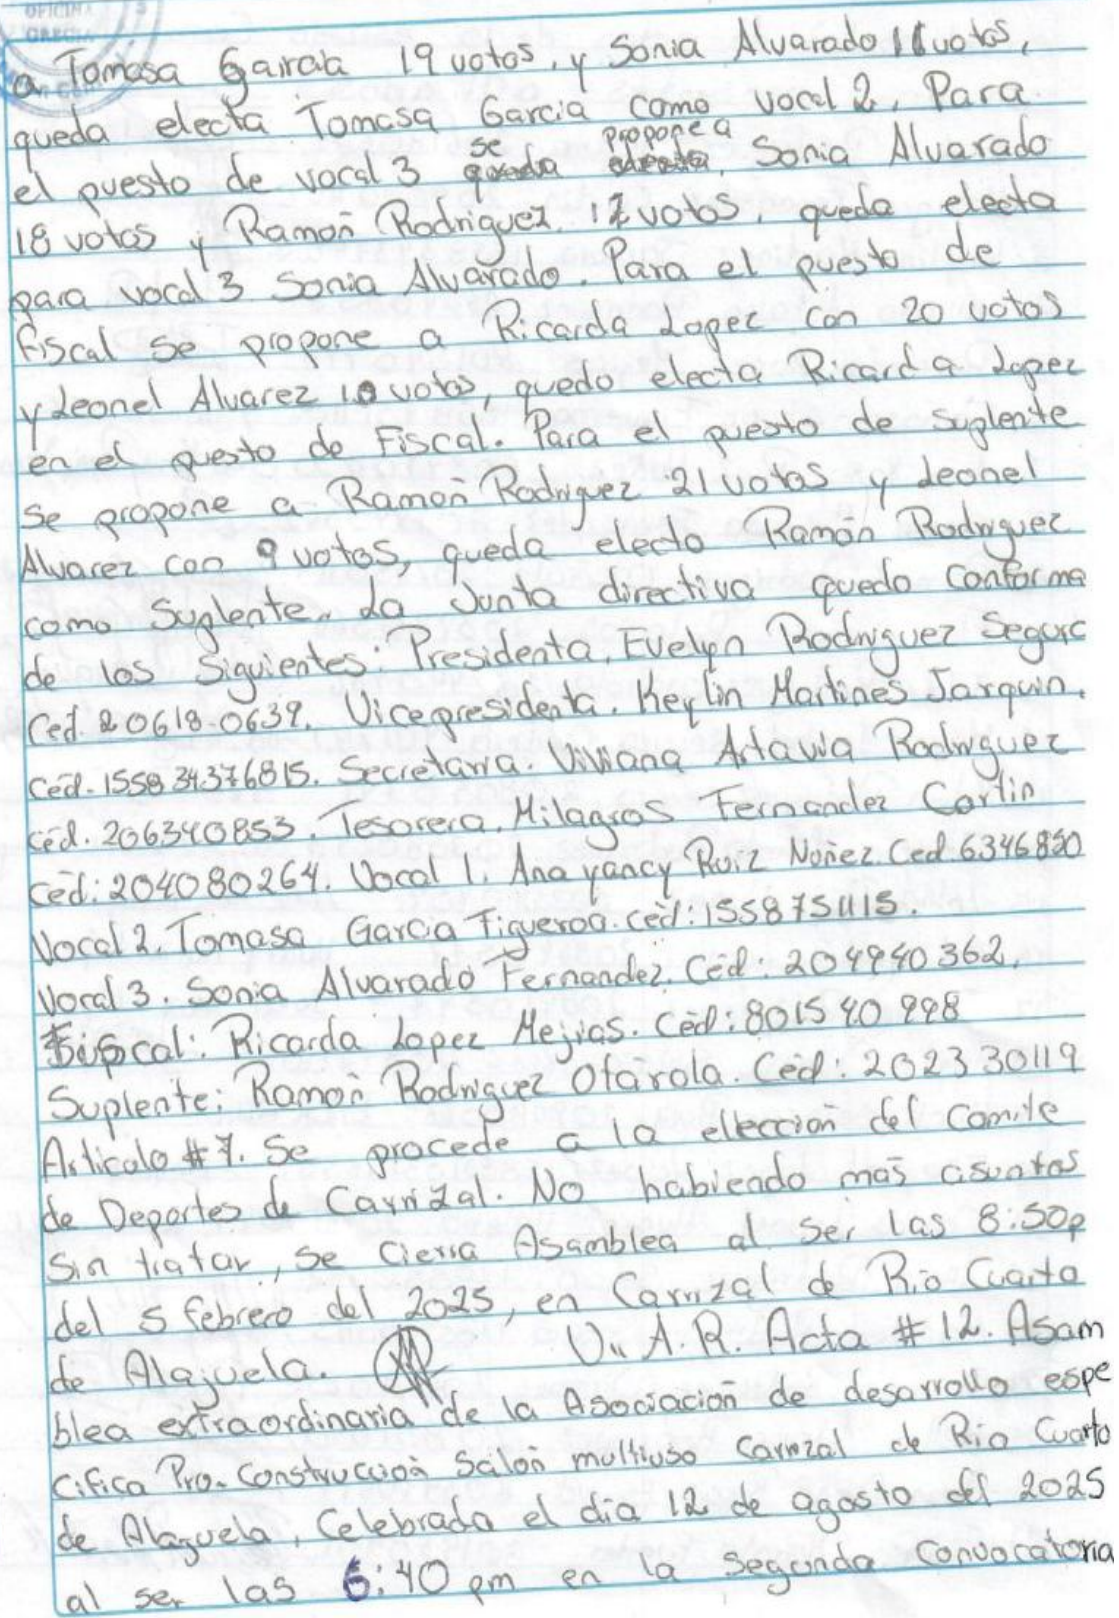 OFICINA
GRECIA
a Tomasa Garcia 19 votos, y Sonia Alvarado 11 votos,
queda electa Tomasa Garcia como vocal 2. Para
el puesto de vocal 3 se propone a Sonia Alvarado
18 votos y Ramón Rodriguez 12 votos, queda electa
para vocal 3 Sonia Alvarado. Para el puesto de
fiscal se propone a Ricarda Lopez con 20 votos
y Leonel Alvarez 10 votos, quedo electa Ricarda Lopez
en el puesto de Fiscal. Para el puesto de suplente
se propone a Ramón Rodriguez 21 votos y Leonel
Alvarez con 9 votos, queda electo Ramón Rodriguez
como Suplente. La Junta directiva quedo conforma
de los Siguientes: Presidenta, Evelyn Rodriguez Segura
Ced. 20618-0639. Vicepresidenta. Keylin Martines Jarquin.
Céd. 155834376815. Secretaria. Viviana Artavia Rodriguez
céd. 206340853. Tesorera, Milagros Fernandez Cartin
Céd: 204080264. Vocal 1. Ana yancy Ruiz Nuñez Ced 6346820
Vocal 2. Tomasa Garcia Figueroa. céd: 155875115.
Vocal 3. Sonia Alvarado Fernandez. Céd: 204940362.
Fiscal: Ricarda Lopez Mejias. Céd: 801540998
Suplente: Ramón Rodriguez Otárola. Céd: 202330119
Articulo #7. Se procede a la elección del Comite
de Deportes de Carrizal. No habiendo más asuntos
sin tratar, se cierra Asamblea al ser las 8:50p
del 5 febrero del 2025, en Carrizal de Rio Cuarto
de Alajuela. V. A. R. Acta # 12. Asam
blea extraordinaria de la Asociación de desarrollo espe
cifica Pro-Construcción Salón multiuso Carrizal de Rio Cuarto
de Alajuela, Celebrada el dia 12 de agosto del 2025
al ser las 6:40 pm en la segunda convocatoria